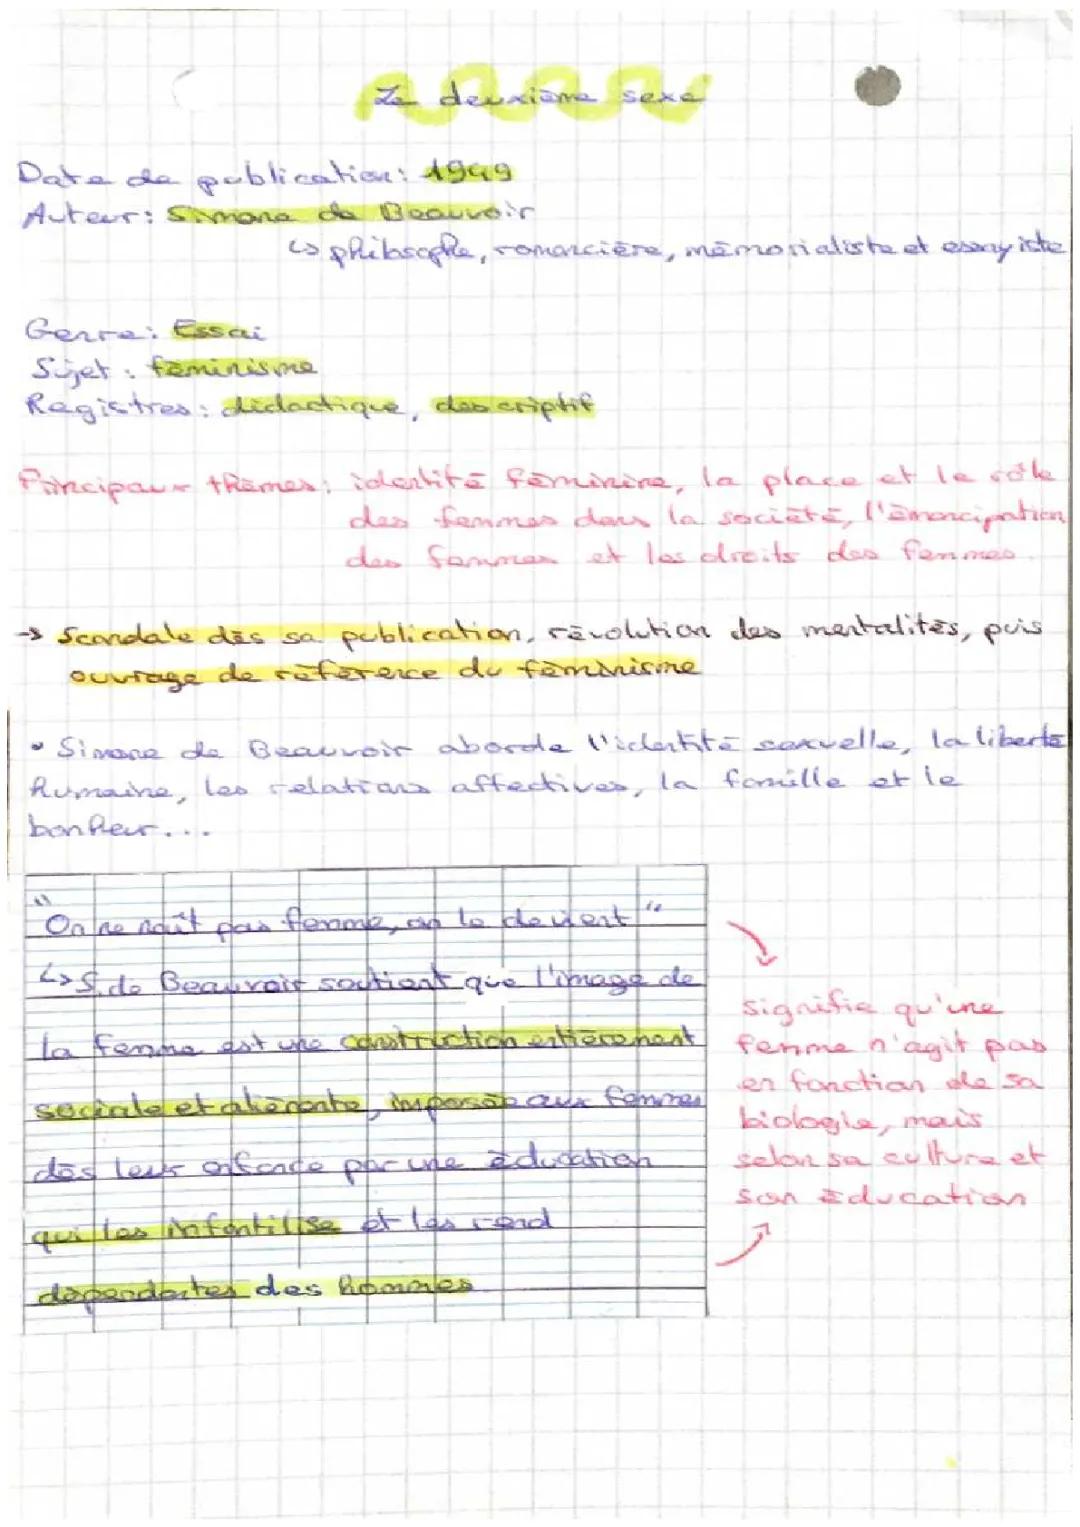 Le deuxième sexe
Date de publication: 1949
Auteur: Simone de Beauvoir
↳ philosophe, romancière, mémorialiste et essayiste
Genre: Essai
Sujet: féminisme
Registres: didactique, descriptif
Principaux thèmes: identité féminine, la place et le rôle
des femmes dans la société, l'émancipation
des femmes et les droits des femmes.
→ Scandale dès sa publication, révolution des mentalités, puis
ouvrage de référence du féminisme
• Simone de Beauvoir aborde l'identité sexuelle, la liberté
humaine, les relations affectives, la famille et le
bonheur...
"On ne naît pas femme, on le devient"
↳ S. de Beauvoir soutient que l'image de
la femme est une construction entièrement
sociale et aliénante, imposée aux femmes
dès leur enfance par une éducation
qui les infantilise et les rend
dépendantes des hommes
signifie qu'une
femme n'agit pas
en fonction de sa
biologie, mais
selon sa culture et
son éducation